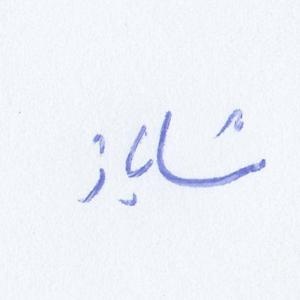 شایاز